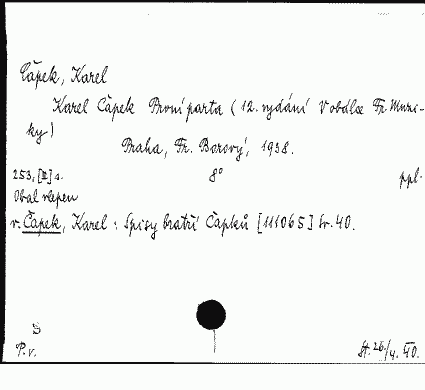 Čapek, Karel
Karel Čapek První parta (12. vydání V obálce Fr. Muzi-
ky)
Praha, Fr. Borový, 1938.
253, [II] s. 8° ppl.
Obal vlepen
v. Čapek, Karel: Spisy bratří Čapků [111065] Sv. 40.
S
P. v. St. 26/4. 40.